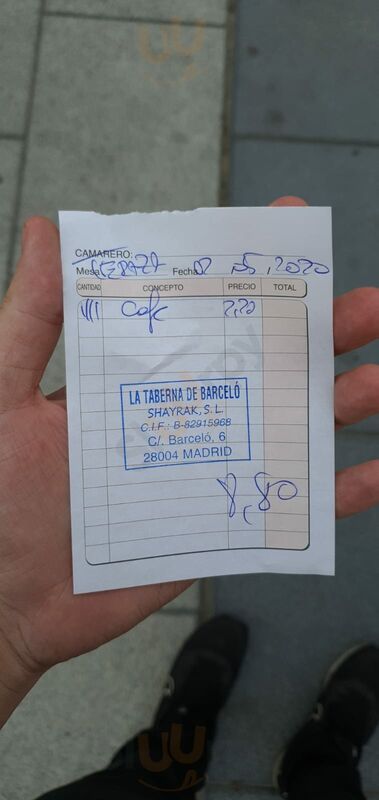 CAMARERO:
Mesa TERRAZA Fecha 02 05, 2020
CANTIDAD CONCEPTO PRECIO TOTAL
Cafe 2,20
LA TABERNA DE BARCELÓ
SHAYRAK, S.L.
C.I.F.: B-82915968
C/. Barceló, 6
28004 MADRID
8,80